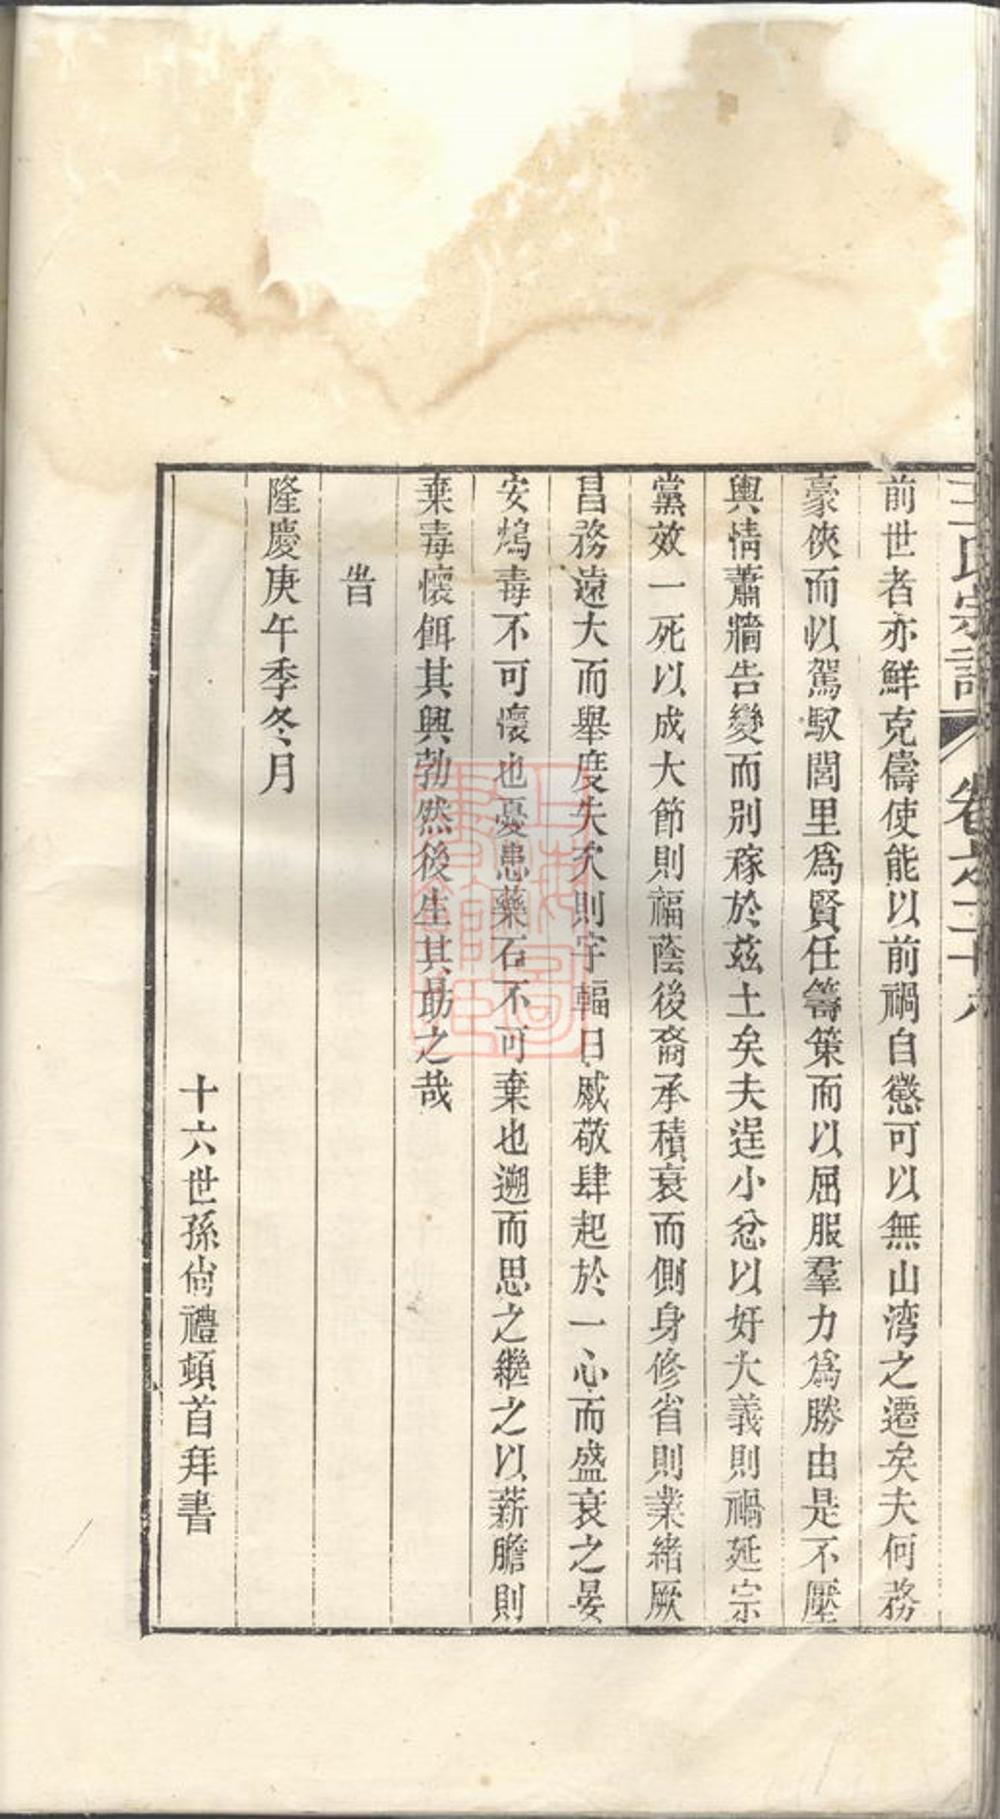 王氏宗譜 卷之三十六
前世者亦鮮克儔使能以前禍自懲可以無山湾之遷矣夫何務
豪俠而以駕馭閭里爲賢任籌策而以屈服羣力爲勝由是不壓
輿情蕭牆告變而別稼於茲土矣夫逞小忿以奸大義則禍延宗
黨效一死以成大節則福蔭後裔承積衰而側身修省則業緒厥
昌務遠大而舉度失次則宇輻日蹙敬肆起於一心而盛衰之
安鴆毒不可懷也憂患藥石不可棄也遡而思之繼之以薪膽則
棄毒懷餌其興勃然後生其勗之哉
旹
隆慶庚午季冬月
十六世孫尙禮頓首拜書
上海圖書館藏